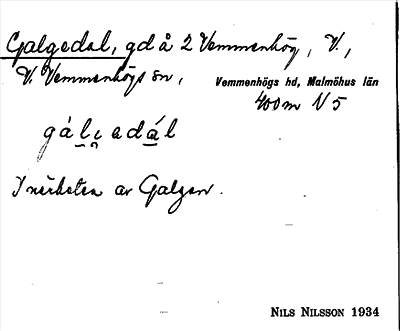 Galgedal, gd å 2 Vemmenhög, V.,
V. Vemmenhögs sn,
Vemmenhögs hd, Malmöhus län
400 m N 5
I närheten av Galgen.
NILS NILSSON 1934